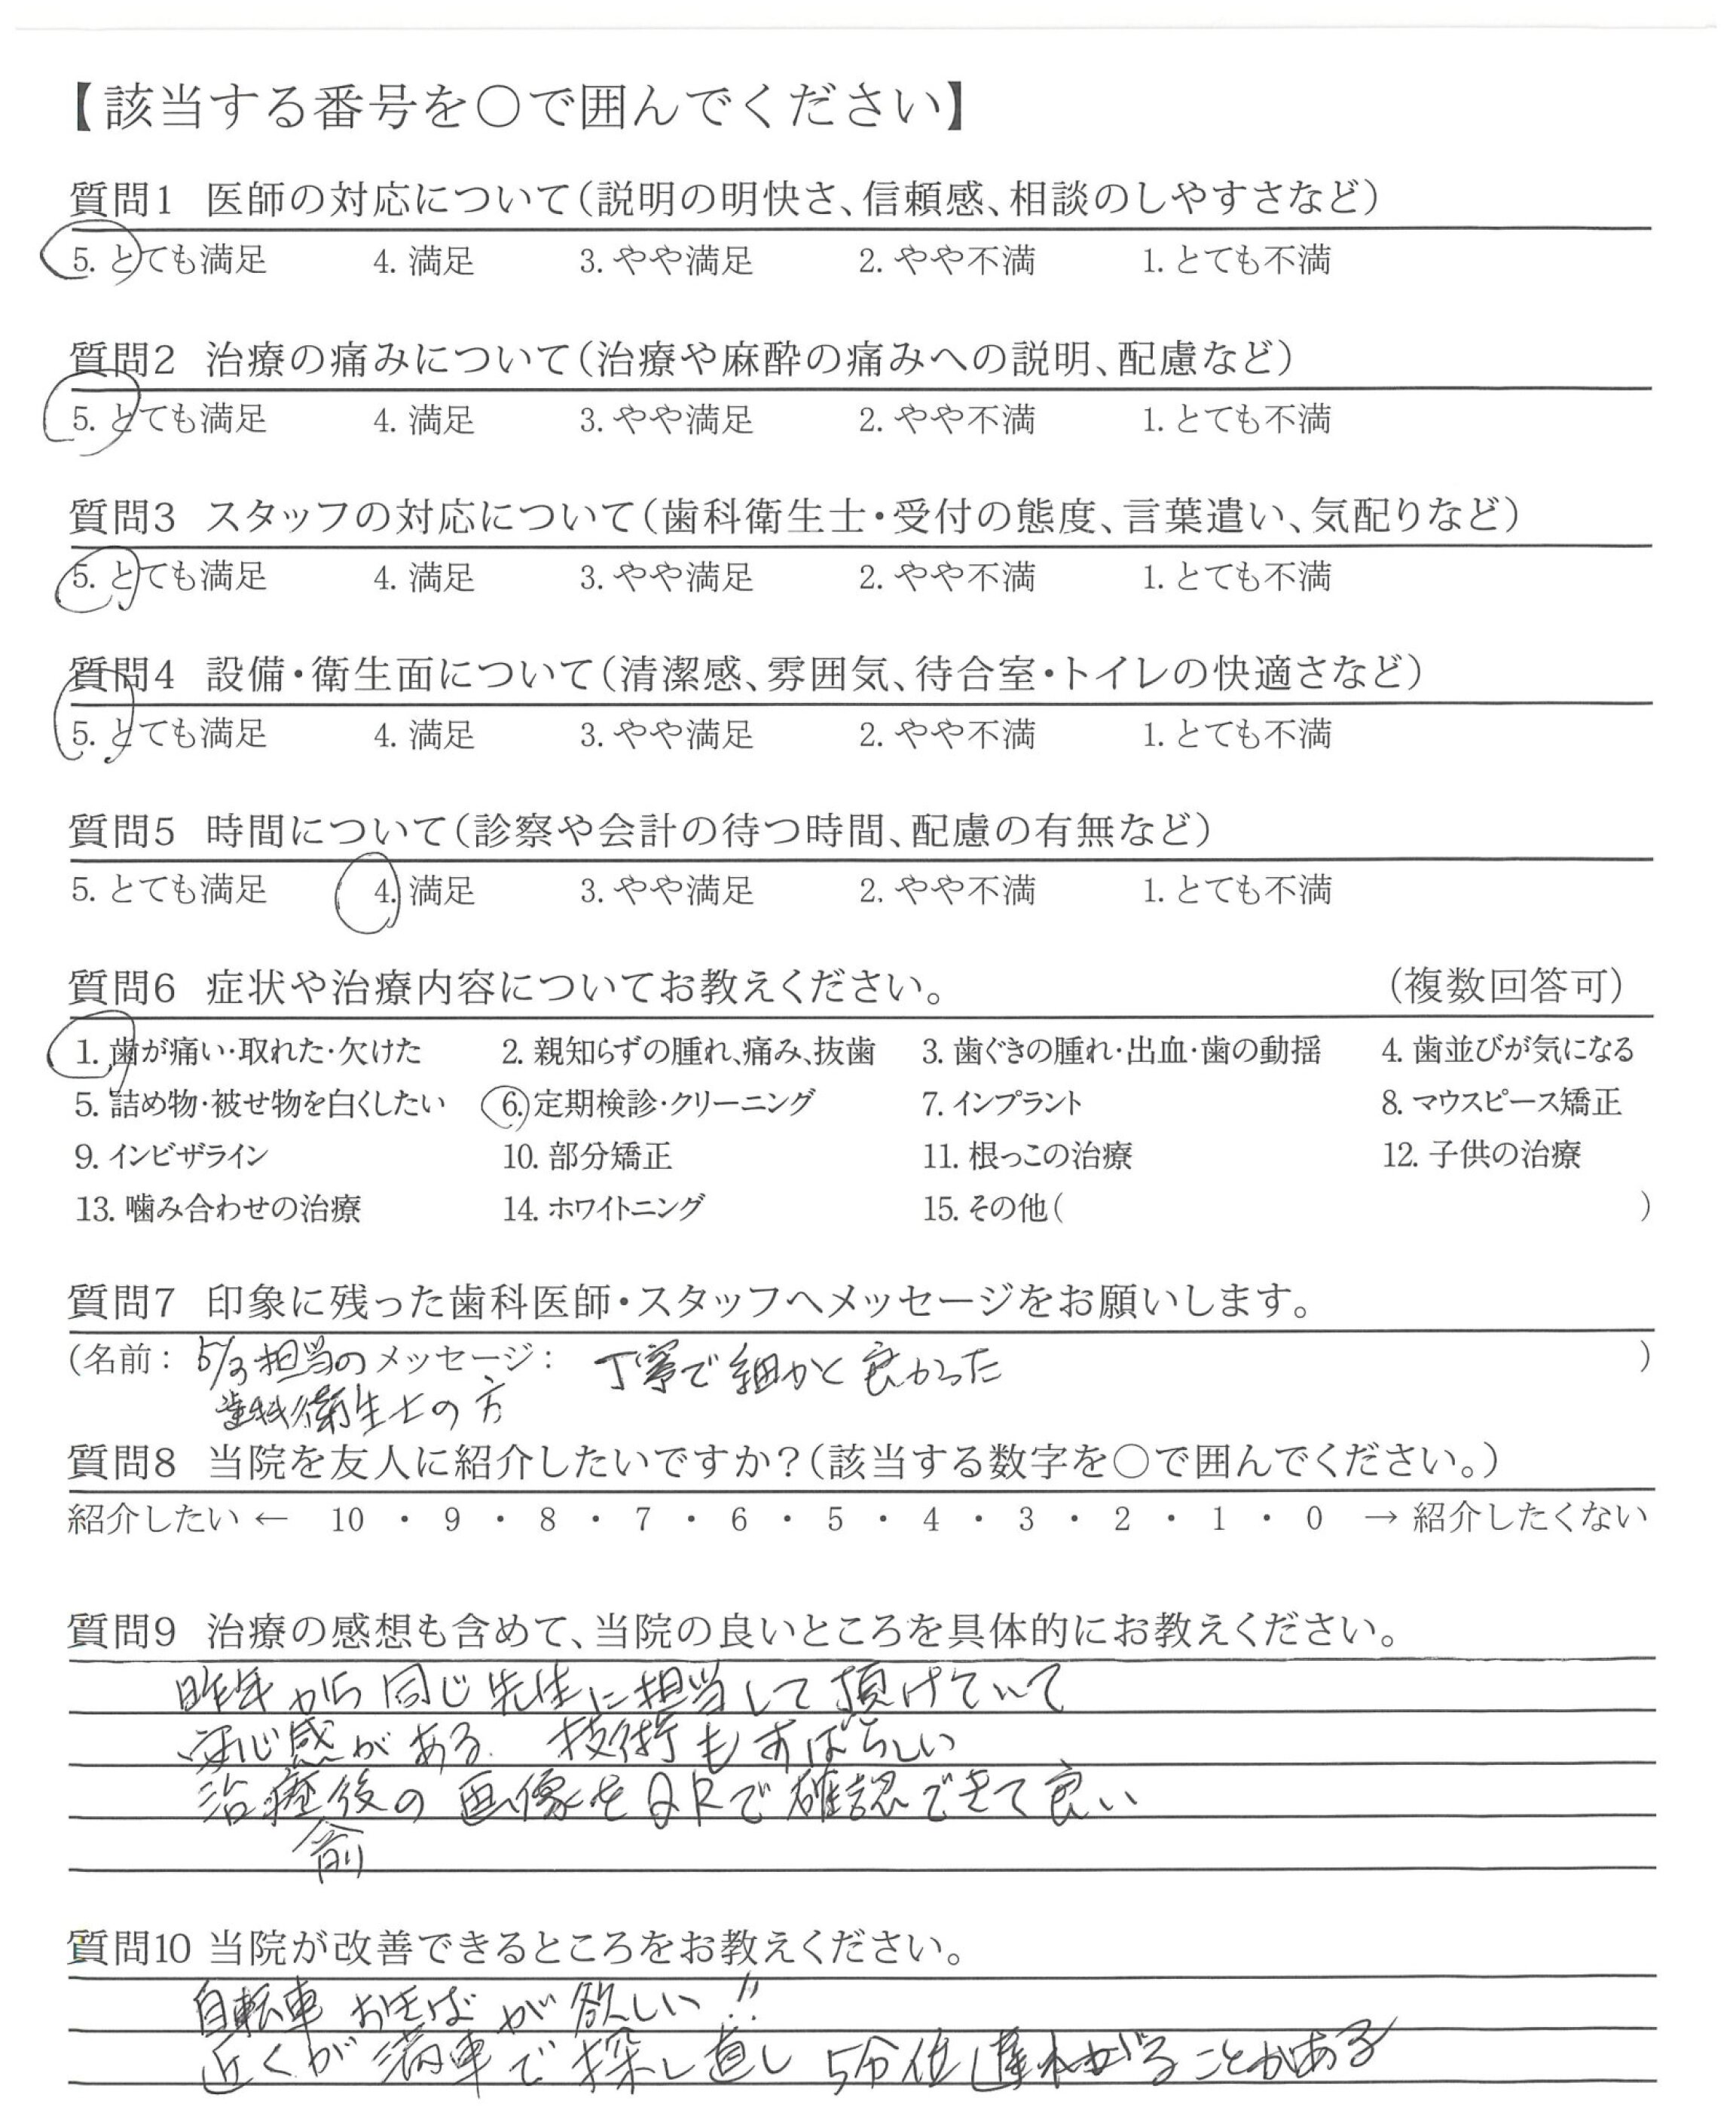 【該当する番号を○で囲んでください】
質問1 医師の対応について(説明の明快さ、信頼感、相談のしやすさなど)
5. とても満足 4. 満足 3. やや満足 2. やや不満 1. とても不満
質問2 治療の痛みについて(治療や麻酔の痛みへの説明、配慮など)
5. とても満足 4. 満足 3. やや満足 2. やや不満 1. とても不満
質問3 スタッフの対応について(歯科衛生士・受付の態度、言葉遣い、気配りなど)
5. とても満足 4. 満足 3. やや満足 2. やや不満 1. とても不満
質問4 設備・衛生面について(清潔感、雰囲気、待合室・トイレの快適さなど)
5. とても満足 4. 満足 3. やや満足 2. やや不満 1. とても不満
質問5 時間について(診察や会計の待つ時間、配慮の有無など)
5. とても満足 4. 満足 3. やや満足 2. やや不満 1. とても不満
質問6 症状や治療内容についてお教えください。 (複数回答可)
1. 歯が痛い・取れた・欠けた 2. 親知らずの腫れ、痛み、抜歯 3. 歯ぐきの腫れ・出血・歯の動揺 4. 歯並びが気になる
5. 詰め物・被せ物を白くしたい 6. 定期検診・クリーニング 7. インプラント 8. マウスピース矯正
9. インビザライン 10. 部分矯正 11. 根っこの治療 12. 子供の治療
13. 噛み合わせの治療 14. ホワイトニング 15. その他( )
質問7 印象に残った歯科医師・スタッフへメッセージをお願いします。
(名前: 5/3担当の メッセージ: 丁寧で細かと良かった )
歯科衛生士の方
質問8 当院を友人に紹介したいですか?(該当する数字を○で囲んでください。)
紹介したい ← 10 ・ 9 ・ 8 ・ 7 ・ 6 ・ 5 ・ 4 ・ 3 ・ 2 ・ 1 ・ 0 → 紹介したくない
質問9 治療の感想も含めて、当院の良いところを具体的にお教えください。
昨年から同じ先生に担当して頂けていて
安心感がある 技術もすばらしい
治療後の画像をQRで確認できて良い
前
質問10 当院が改善できるところをお教えください。
自転車おきばが欲しい!!
近くが満車で探し直し 5分位遅れがることがある